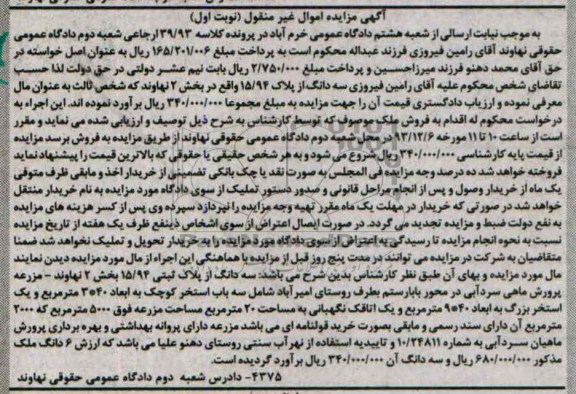 آگهی مزایده اموال غیر منقول (نوبت اول)
به موجب نیابت ارسالی از شعبه هشتم دادگاه عمومی خرم آباد در پرونده کلاسه ۳۹/۹۳ ارجاعی شعبه دوم دادگاه عمومی
حقوقی نهاوند آقای رامین فیروزی فرزند عبداله محکوم است به پرداخت مبلغ ۱۶۵/۲۰۱/۰۰۶ ریال به عنوان اصل خواسته در
حق آقای محمد دهنو فرزند میرزاحسین و پرداخت مبلغ ۲/۷۵۰/۰۰۰ ریال بابت نیم عشر دولتی در حق دولت لذا حسب
تقاضای شخص محکوم علیه آقای رامین فیروزی سه دانگ از پلاک ۱۵/۹۴ واقع در بخش ۲ نهاوند که شخص ثالث به عنوان مال
معرفی نموده و ارزیاب دادگستری قیمت آن را جهت مزایده به مبلغ مجموعا ۳۴۰/۰۰۰/۰۰۰ ریال برآورد نموده اند. این اجراء به
درخواست محکوم له اقدام به فروش ملک موصوف که توسط کارشناس به شرح ذیل توصیف و ارزیابی شده می نماید و مقرر
است از ساعت ۱۰ تا ۱۱ مورخه ۹۳/۱۲/۶ در محل شعبه دوم دادگاه عمومی حقوقی نهاوند از طریق مزایده به فروش برسد مزایده
از قیمت پایه کارشناسی ۳۴۰/۰۰۰/۰۰۰ ریال شروع می شود و به هر شخص حقیقی یا حقوقی که بالاترین قیمت را پیشنهاد نماید
فروخته خواهد شد ده درصد وجه مزایده فی المجلس به صورت نقد یا چک بانکی تضمینی از خریدار اخذ و مابقی ظرف متوفی
یک ماه از خریدار وصول و پس از انجام مراحل قانونی و صدور دستور تملیک از سوی دادگاه مورد مزایده به نام خریدار منتقل
خواهد شد در صورتی که خریدار در مهلت یک ماه مقرر بقیه وجه مزایده را نپردازد سپرده وی پس از کسر هزینه های مزایده
به نفع دولت ضبط و مزایده تجدید می گردد. در صورت ایصال اعتراض از سوی اشخاص ذینفع ظرف یک هفته از تاریخ مزایده
نسبت به نحوه انجام مزایده تا رسیدگی به اعتراض از سوی دادگاه مورد مزایده را به خریدار تحویل و تملیک نخواهد شد ضمنا
متقاضیان به شرکت در مزایده می توانند در مدت پنج روز قبل از مزایده با هماهنگی این اجراء از مال مورد مزایده دیدن نمایند
مال مورد مزایده و بهای آن طبق نظر کارشناس بدین شرح می باشد: سه دانگ از پلاک ثبتی ۱۵/۹۴ بخش ۲ نهاوند - مزرعه
پرورش ماهی سردآبی در محور بابارستم بطرف روستای امیر آباد شامل سه باب استخر کوچک به ابعاد ۴۰*۳ مترمربع و یک
استخر بزرگ به ابعاد ۴۰*۹ مترمربع و یک اتاقک نگهبانی به مساحت ۲۰ مترمربع مساحت مزرعه فوق ۵۰۰۰ مترمربع که ۲۰۰۰
مترمربع آن دارای سند رسمی و مابقی بصورت خرید قولنامه ای می باشد مزرعه دارای پروانه بهداشتی و بهره برداری پرورش
ماهیان سردآبی به شماره ۱۰/۲۴۸۱۱ و تاییدیه استفاده از نهر آب سنتی روستای دهنو علیا می باشد که ارزش ۶ دانگ ملک
مذکور ۶۸۰/۰۰۰/۰۰۰ ریال و سه دانگ آن ۳۴۰/۰۰۰/۰۰۰ ریال برآورد گردیده است.
۴۳۷۵- دادرس شعبه دوم دادگاه عمومی حقوقی نهاوند